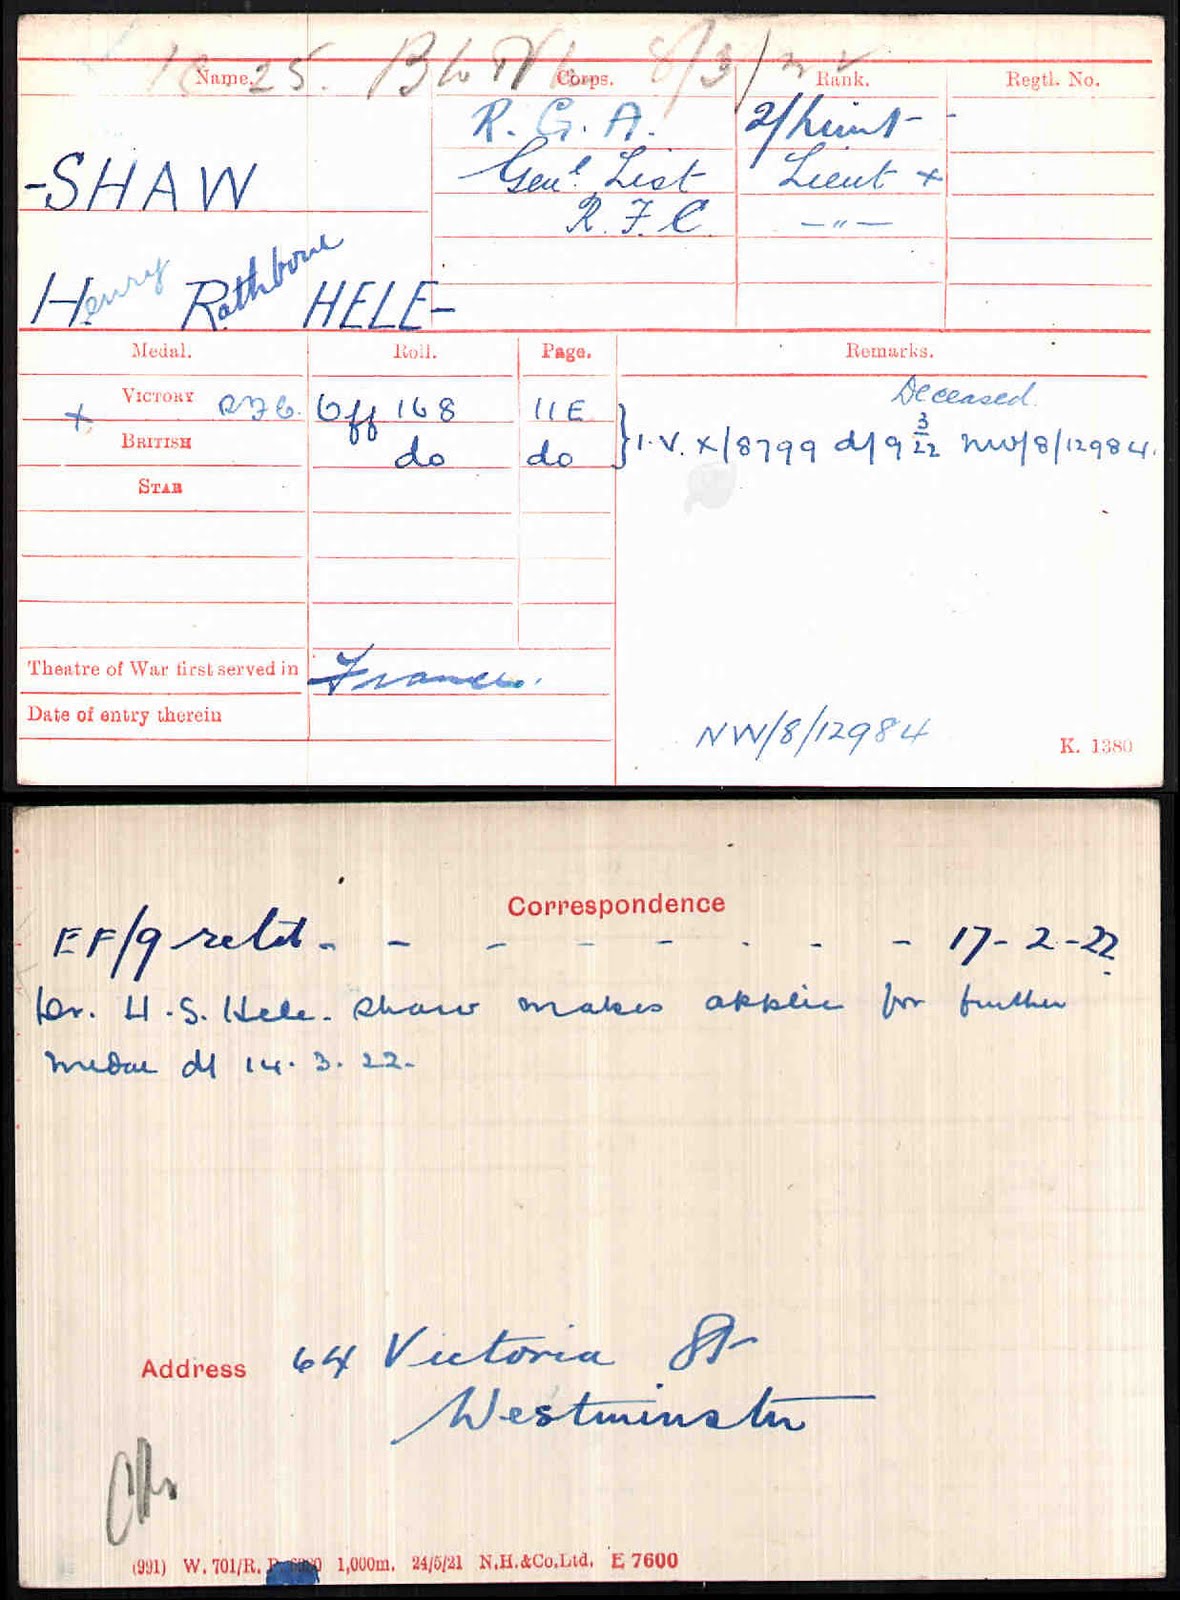 25.
Name. Corps. Rank. Regtl. No.
R. G. A. 2/Lieut -
-SHAW Genl. List Lieut x
R. F. C. —"—
Henry Rathbone HELE-
Medal. Roll. Page. Remarks.
Deceased.
x VICTORY RFC. Off 168 11E
BRITISH do do } I.V. X/8799 d/9 3/22 NW/8/12984.
STAR
Theatre of War first served in France.
Date of entry therein
NW/8/12984
K. 1380
Correspondence
EF/9 retd - - - - - - - - 17-2-22
H.S. Hele-Shaw makes applic for further
medal d/ 14.3.22.
Address 64 Victoria St
Westminster
(991) W. 701/R. 1,000m. 24/5/21 N.H.&Co.Ltd. E 7600